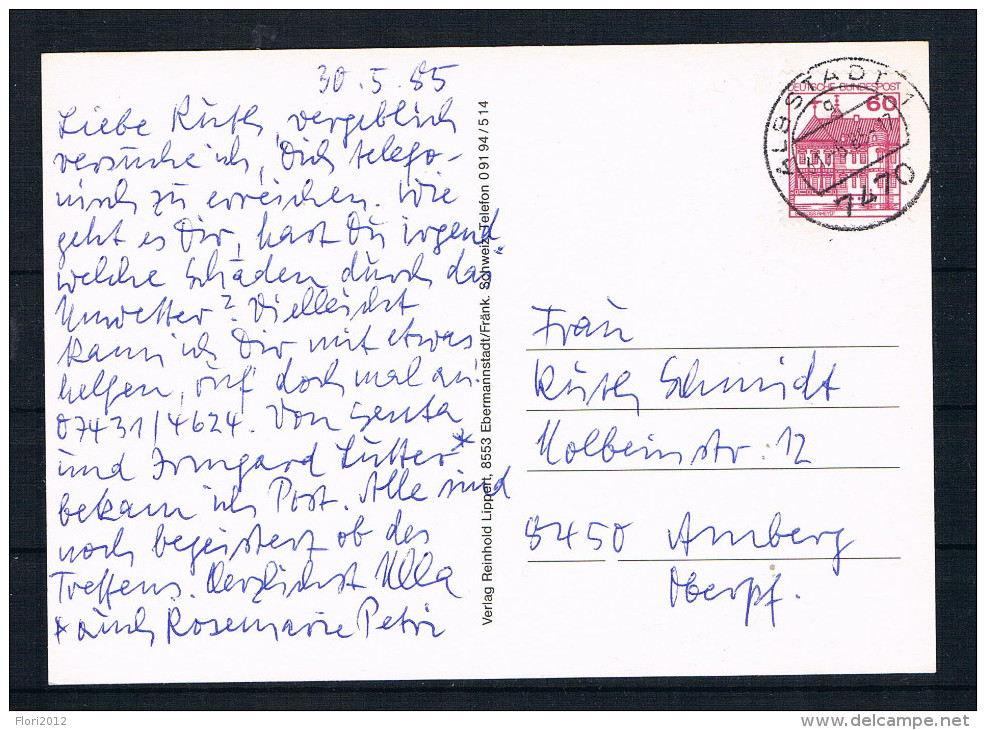 30.5.85
Liebe Ruth, vergeblich
versuche ich, Dich telefo-
nisch zu erreichen. Wie
geht es Dir, hast Du irgend
welche Schäden durch das
Unwetter? Vielleicht
kann ich Dir mit etwas
helfen, ruf doch mal an:
07431/4624. Von Senta
und Irmgard Lutter*
bekam ich Post. Alle sind
noch begeistert ob des
Treffens. Herzlichst Ulla
* auch Rosemarie Petri
Verlag Reinhold Lippert, 8553 Ebermannstadt/Fränk. Schweiz, Telefon 0 91 94 / 5 14
ALBSTADT 1
7470
DEUTSCHE BUNDESPOST
60
Frau
Ruth Schmidt
Holbeinstr. 12
8450 Amberg
Oberpf.
Flori2012
www.delcampe.net